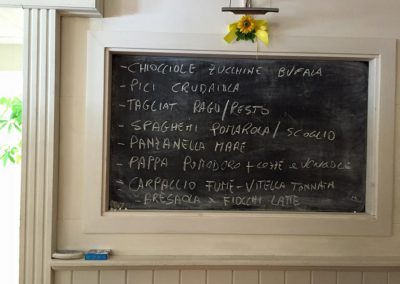 - CHIOCCIOLE ZUCCHINE BUFALA
- PICI CRUDAIOLA
- TAGLIAT RAGU/PESTO
- SPAGHETTI POMAROLA/SCOGLIO
- PANZANELLA MARE
- PAPPA POMODORO + COZZE e VONGOLE
- CARPACCIO FUME - VITELLA TONNATA
- BRESAOLA FIOCCHI LATTE